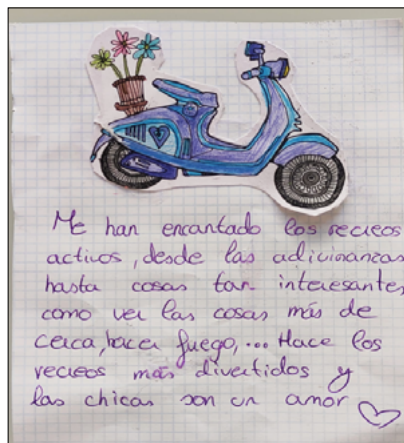 Me han encantado los recreos
activos, desde las adivinanzas
hasta cosas tan interesantes
como ver las cosas más de
cerca, hacer fuego,... Hace los
recreos más divertidos y
las chicas son un amor